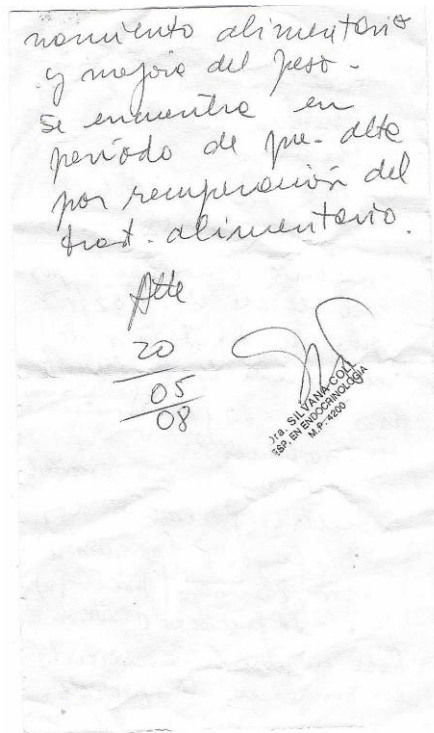 namiento alimentario
y mejoria del peso -
Se encuentra en
período de pre-alta
por recuperación del
trast. alimentario.
Atte
20
05
08
Dra. SILVANA COLL
ESP. EN ENDOCRINOLOGIA
M.P. 4200